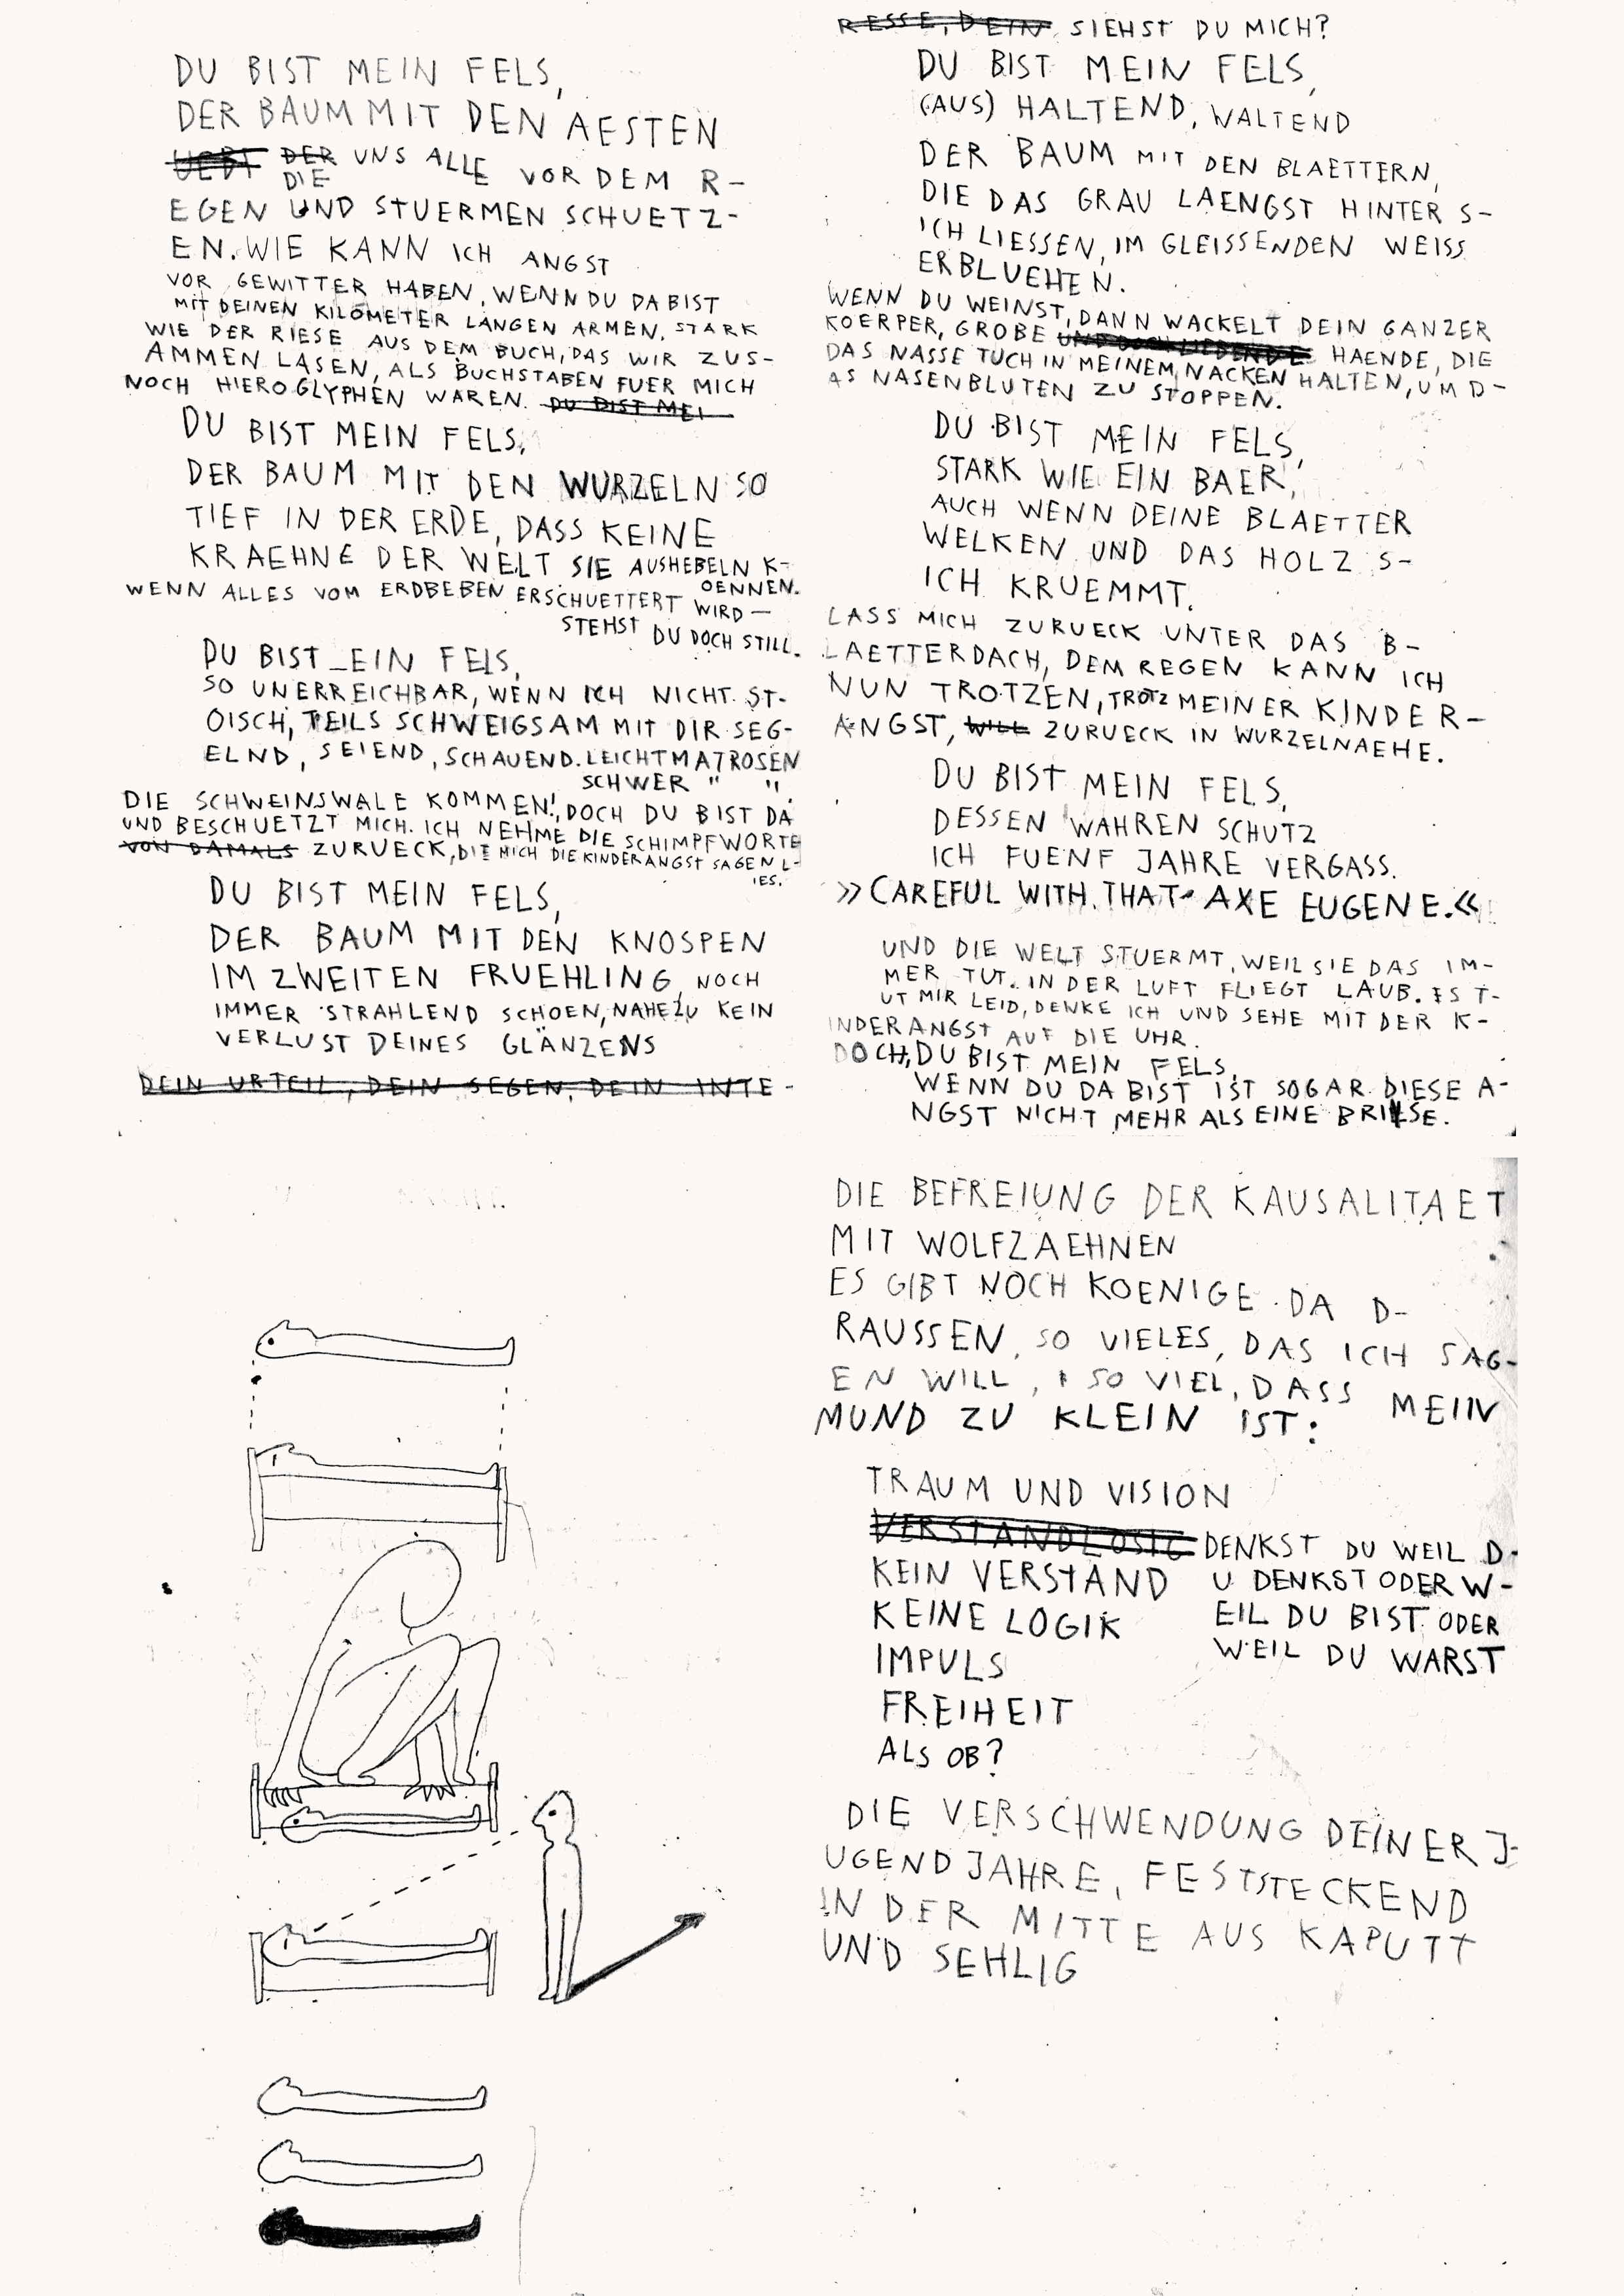 DU BIST MEIN FELS,
DER BAUM MIT DEN AESTEN
UEBT DER UNS ALLE VOR DEM R-
DIE
EGEN UND STUERMEN SCHUETZ-
EN. WIE KANN ICH ANGST
VOR GEWITTER HABEN, WENN DU DA BIST
MIT DEINEN KILOMETER LANGEN ARMEN. STARK
WIE DER RIESE AUS DEM BUCH, DAS WIR ZUS-
AMMEN LASEN, ALS BUCHSTABEN FUER MICH
NOCH HIEROGLYPHEN WAREN. DU BIST MEI
DU BIST MEIN FELS,
DER BAUM MIT DEN WURZELN SO
TIEF IN DER ERDE, DASS KEINE
KRAEHNE DER WELT SIE AUSHEBELN K-
OENNEN.
WENN ALLES VOM ERDBEBEN ERSCHUETTERT WIRD —
STEHST DU DOCH STILL.
DU BIST _EIN FELS,
SO UNERREICHBAR, WENN ICH NICHT ST-
OISCH, TEILS SCHWEIGSAM MIT DIR SEG-
ELND, SEIEND, SCHAUEND. LEICHTMATROSEN
SCHWER " ".
DIE SCHWEINSWALE KOMMEN!, DOCH DU BIST DA
UND BESCHUETZT MICH. ICH NEHME DIE SCHIMPFWORTE
VON DAMALS ZURUECK, DIE MICH DIE KINDERANGST SAGEN L-
IES.
DU BIST MEIN FELS,
DER BAUM MIT DEN KNOSPEN
IM ZWEITEN FRUEHLING, NOCH
IMMER STRAHLEND SCHOEN, NAHEZU KEIN
VERLUST DEINES GLÄNZENS
DEIN URTEIL, DEIN SEGEN, DEIN INTE-
RESSE, DEIN SIEHST DU MICH?
DU BIST MEIN FELS,
(AUS) HALTEND, WALTEND
DER BAUM MIT DEN BLAETTERN,
DIE DAS GRAU LAENGST HINTER S-
ICH LIESSEN, IM GLEISSENDEN WEISS
ERBLUEHEN.
WENN DU WEINST, DANN WACKELT DEIN GANZER
KOERPER, GROBE UND DOCH LIEBENDE HAENDE, DIE
DAS NASSE TUCH IN MEINEM NACKEN HALTEN, UM D-
AS NASENBLUTEN ZU STOPPEN.
DU BIST MEIN FELS,
STARK WIE EIN BAER,
AUCH WENN DEINE BLAETTER
WELKEN UND DAS HOLZ S-
ICH KRUEMMT.
LASS MICH ZURUECK UNTER DAS B-
LAETTERDACH, DEM REGEN KANN ICH
NUN TROTZEN, TROTZ MEINER KINDER-
ANGST, WILL ZURUECK IN WURZELNAEHE.
DU BIST MEIN FELS,
DESSEN WAHREN SCHUTZ
ICH FUENF JAHRE VERGASS.
»CAREFUL WITH THAT AXE EUGENE.«
UND DIE WELT STUERMT, WEIL SIE DAS IM-
MER TUT. IN DER LUFT FLIEGT LAUB. ES T-
UT MIR LEID, DENKE ICH UND SEHE MIT DER K-
INDERANGST AUF DIE UHR.
DOCH, DU BIST MEIN FELS,
WENN DU DA BIST IST SOGAR DIESE A-
NGST NICHT MEHR ALS EINE BRIESE.
DIE BEFREIUNG DER KAUSALITAET
MIT WOLFZAEHNEN
ES GIBT NOCH KOENIGE DA D-
RAUSSEN, SO VIELES, DAS ICH SAG-
EN WILL, SO VIEL, DASS MEIN
MUND ZU KLEIN IST:
TRAUM UND VISION
VERSTANDLOSIG
KEIN VERSTAND
KEINE LOGIK
IMPULS
FREIHEIT
ALS OB?
DENKST DU WEIL D-
U DENKST ODER W-
EIL DU BIST ODER
WEIL DU WARST
DIE VERSCHWENDUNG DEINER J-
UGENDJAHRE, FESTSTECKEND
IN DER MITTE AUS KAPUTT
UND SEHLIG